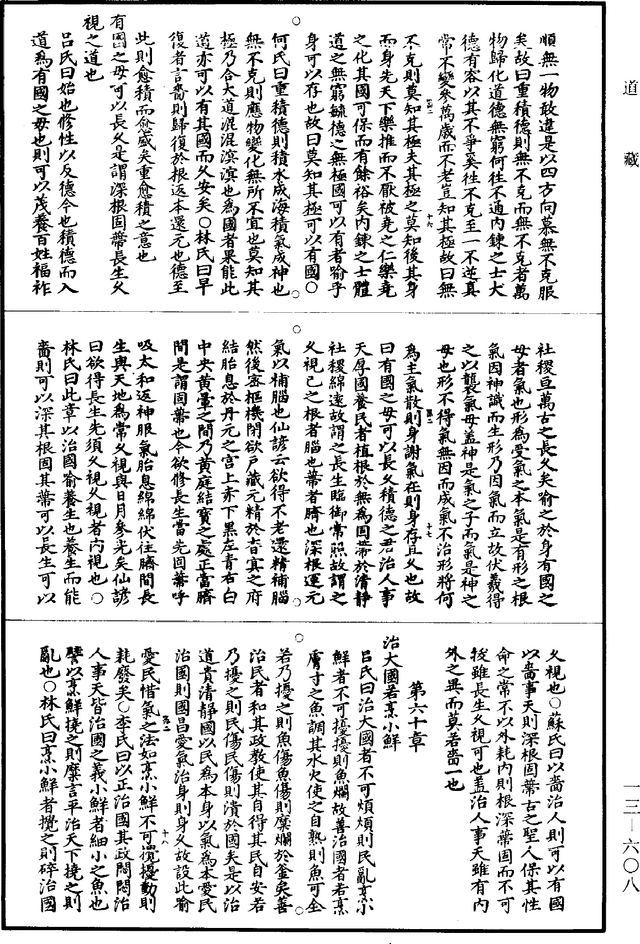 道藏
順無一物敢違是以四方向慕無不克服
矣故曰重積德則無不克而無不克者萬
物歸化道德無窮何往不通內鍊之士大
德有容以其不爭奚往不克至一不逆真
常不變參萬歲而不老豈知其極故曰無
不克則莫知其極夫其極之莫知後其身
而身先天下樂推而不厭被堯之仁樂堯
之化其國可保而有餘裕矣內鍊之士體
道之無窮毓德之無極國可以有者喻乎
身可以存也故曰莫知其極可以有國○
何氏曰重積德則積水成海積氣成神也
無不克則應物變化無所不宜也莫知其
極乃合大道混混溟溟也為國者果能此
道亦可以有其國而久安矣○林氏曰早
復者言嗇則歸復於根返本還元也德至
此則愈積而愈盛矣重愈積之意也
有國之母可以長久是謂深根固蔕長生久
視之道也
呂氏曰始也修性以反德今也積德而入
道為有國之母也則可以茂養百姓福祚
社稷亘萬古之長久矣喻之於身有國之
母者氣也形為受氣之本氣是有形之根
氣因神識而生形乃因氣而立故伏羲得
之以襲氣母蓋神是氣之子而氣是神之
母也形不得氣無因而成氣不治形將何
為主氣散則身謝氣在則身存且久也故
曰有國之母可以長久積德之君治人事
天厚國養民者植根於無為固蔕於清靜
社稷綿遠故謂之長生臨御常照故謂之
久視己之根者腦也蔕者臍也深根運元
氣以補腦也仙諺云欲得不老還精補腦
然後塞樞機閉欲戶藏元精於杳冥之府
結胎息於丹元之宮上赤下黑左青右白
中央黃暈之間乃黃庭結寶之處正當臍
間是謂固蔕也今欲修長生當先固蔕呼
吸太和返神服氣胎息綿綿伏住臍間長
生與天地為常久視與日月參光矣仙諺
曰欲得長生先須久視久視者內視也○
林氏曰此章以治國喻養生也養生而能
嗇則可以深其根固其蔕可以長生可以
久視也○蘇氏曰以嗇治人則可以有國
以嗇事天則深根固蔕古之聖人保其性
命之常不以外耗內則根深蔕固而不可
拔雖長生久視可也蓋治人事天雖有內
外之異而莫若嗇一也
第六十章
治大國若烹小鮮
呂氏曰治大國者不可煩煩則民亂烹小
鮮者不可擾擾則魚爛故善治國者若烹
膚寸之魚調其水火使之自熟則魚可全
若乃擾之則魚傷魚傷則糜爛於釜矣善
治民者和其政教使其自得其民自安若
乃擾之則民傷民傷則潰於國矣是以治
道貴清靜國以民為本身以氣為本愛民
治國則國昌愛氣治身則身久故設此喻
愛民惜氣之法如烹小鮮不可攪擾動則
耗廢矣○李氏曰以正治國其政悶悶治
人事天皆治國之義小鮮者細小之魚也
譬以烹鮮撓之則糜言平治天下撓之則
亂也○林氏曰烹小鮮者攪之則碎治國
一三—六〇八